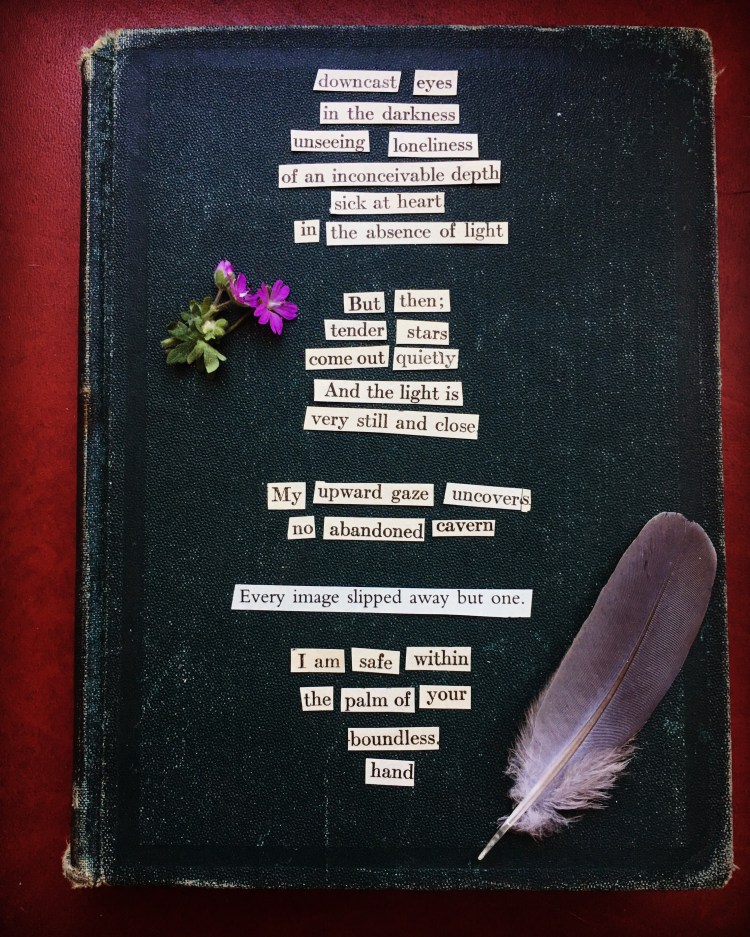 downcast eyes
in the darkness
unseeing loneliness
of an inconceivable depth
sick at heart
in the absence of light
But then;
tender stars
come out quietly
And the light is
very still and close
My upward gaze uncovers
no abandoned cavern
Every image slipped away but one.
I am safe within
the palm of your
boundless.
hand